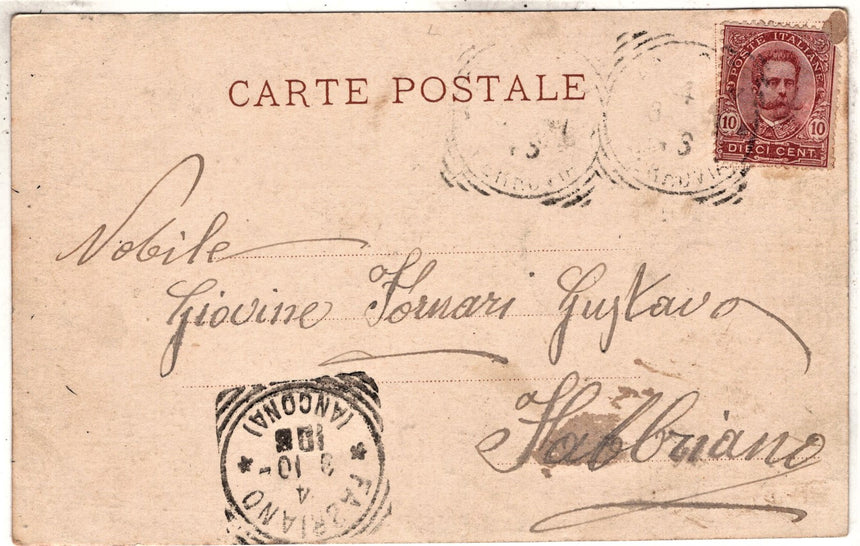 CARTE POSTALE
POSTE ITALIANE
10 10
DIECI CENT.
Nobile
Giovine Fornari Gustavo
Fabbriano
FABRIANO
(ANCONA)